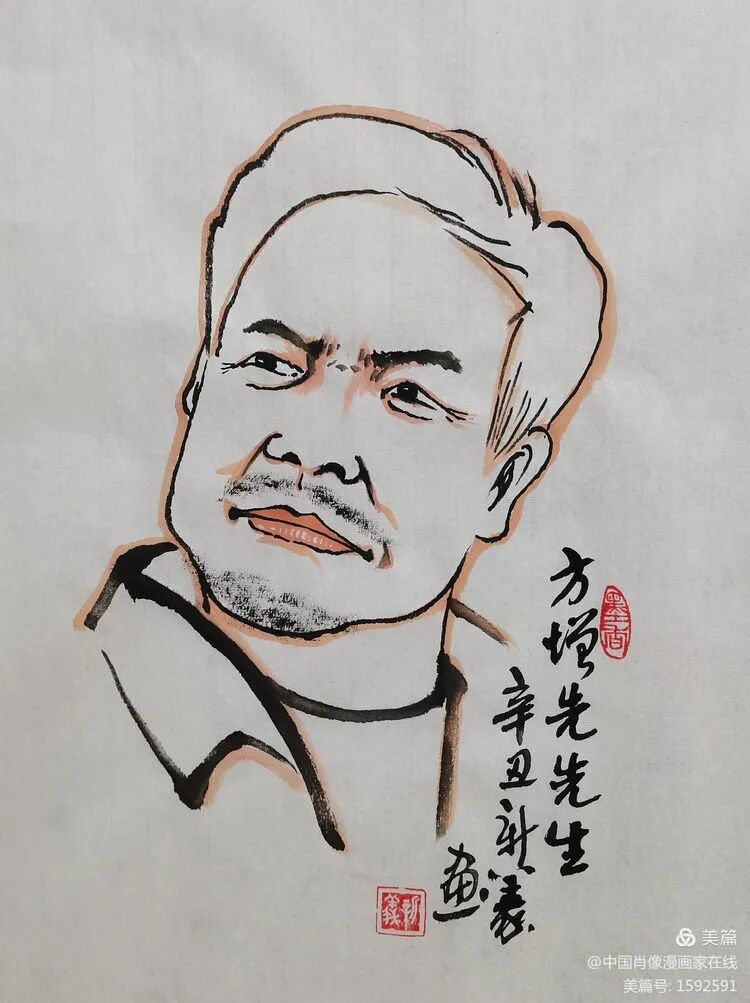 方增先先生
辛丑新義
画
墨香
新義
美篇
@中国肖像漫画家在线
美篇号: 1592591